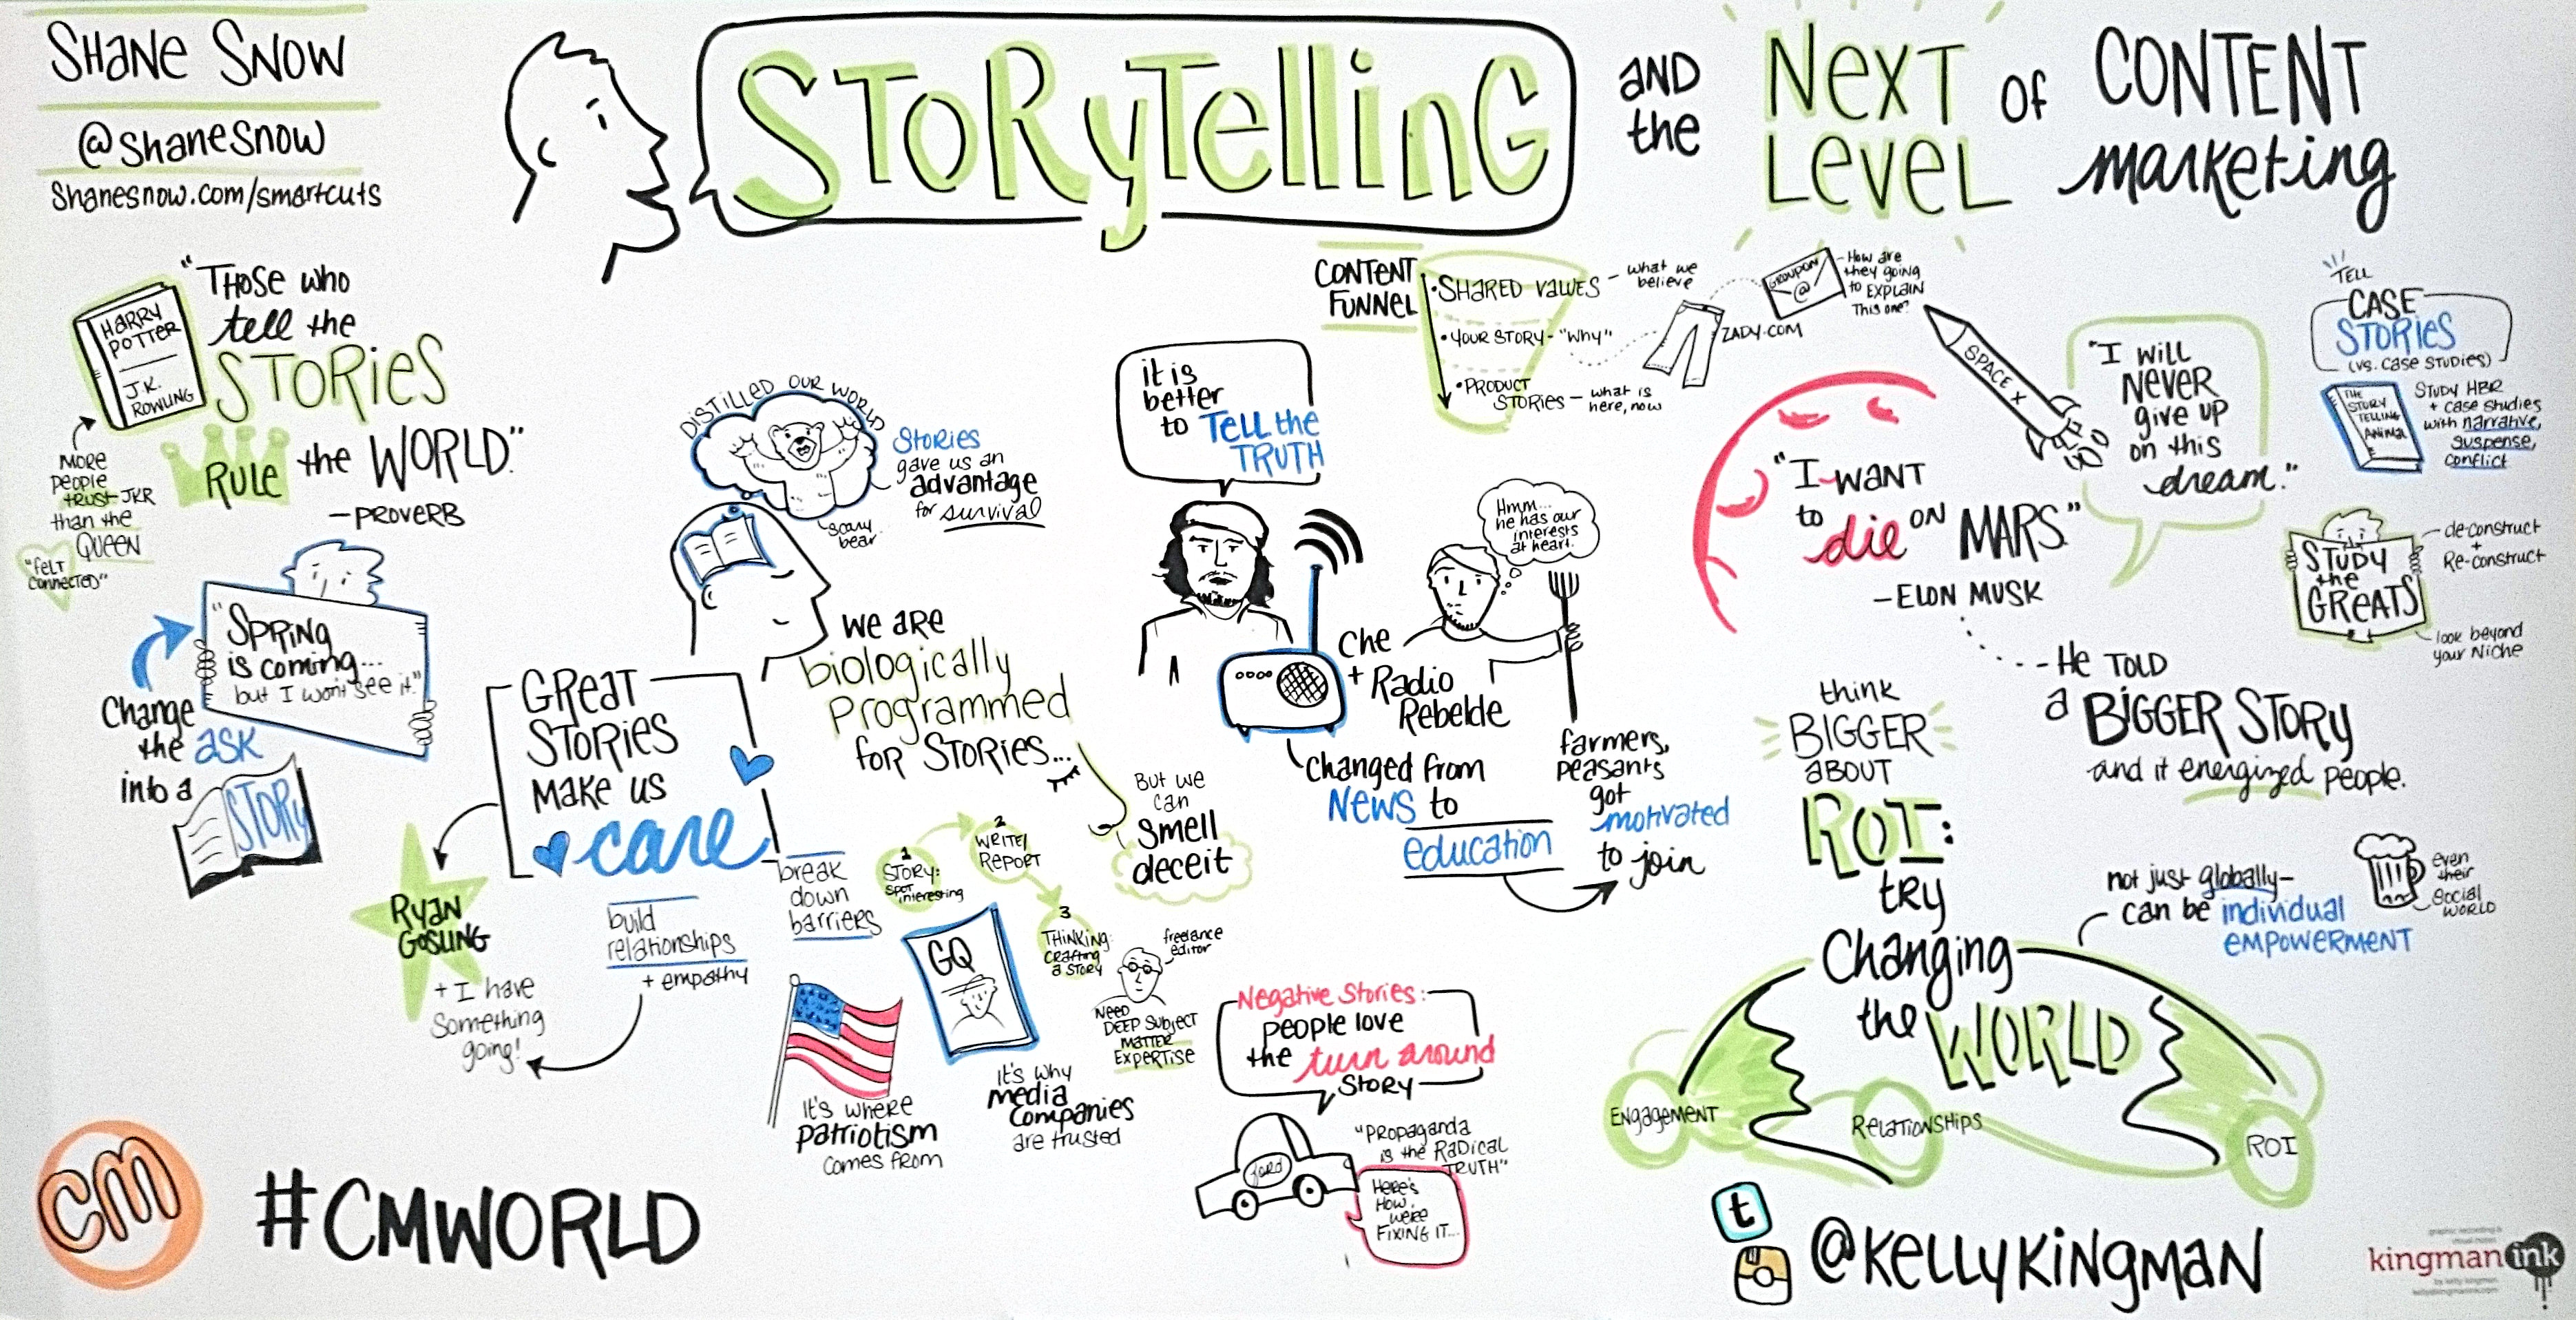 SHANE SNOW
@shanesnow
shanesnow.com/smartcuts
STORyTelling
AND
the
NEXT
LEVEL
of
CONTENT
marketing
HARRY
POTTER
J.K.
ROWLING
"THOSE WHO
tell the
STORIES
RULE the WORLD."
-PROVERB
MORE
people
trust JKR
than the
QUEEN
"felt
connected"
"SPRING
is coming...
but I won't see it."
Change
the ask
into a
STORY
GREAT
STORIES
MAKE US
care
RYAN
GOSLING
+ I have
Something
going!
build
relationships
+ empathy
break
down
barriers
DISTILLED OUR WORLD
scary
bear
Stories
gave us an
advantage
for survival
WE ARE
biologically
Programmed
for STORIES...
BUT WE
can
smell
deceit
1
STORY:
SPOT
interesting
2
WRITE/
REPORT
3
THINKING:
crafting
a STORY
freelance
editor
NEED
DEEP SUBJECT
MATTER
EXPERTISE
GQ
IT'S WHERE
patriotism
comes from
IT'S WHY
media
companies
are trusted
it is
better
to TELL the
TRUTH
Che
+ Radio
Rebelde
Changed from
NEWS to
education
Hmm...
he has our
interests
at heart.
farmers,
peasants
got
motivated
to join
Negative Stories:
people love
the turn around
STORY
ford
"PROPAGANDA
is the RADICAL
TRUTH"
HERE'S
HOW
we're
FIXING IT...
CONTENT
FUNNEL
• SHARED VALUES - what we
believe
• YOUR STORY - "WHY"
• PRODUCT
STORIES - what is
here, now
ZADY.COM
GROUPON
@
- How are
they going
to EXPLAIN
This one?
SPACE X
"I WANT
to die ON MARS."
-ELON MUSK
"I will
NEVER
give up
on this
dream."
- He TOLD
a BIGGER STORY
and it energized people.
think
BIGGER
ABOUT
ROI:
try
Changing
the WORLD
ENGAGEMENT
RELATIONSHIPS
ROI
not just globally-
can be individual
EMPOWERMENT
even
their
SOCIAL
WORLD
TELL
CASE
STORIES
(vs. CASE STUDIES)
THE
STORY
TELLING
ANIMAL
STUDY HBR
+ case studies
with narrative,
suspense,
conflict
STUDY
the
GREATS
de-construct
+
Re-construct
look beyond
your Niche
CM
#CMWORLD
t
@KELLYKINGMAN
graphic recording &
visual notes
kingman ink
by kelly kingman
kellykingmanink.com